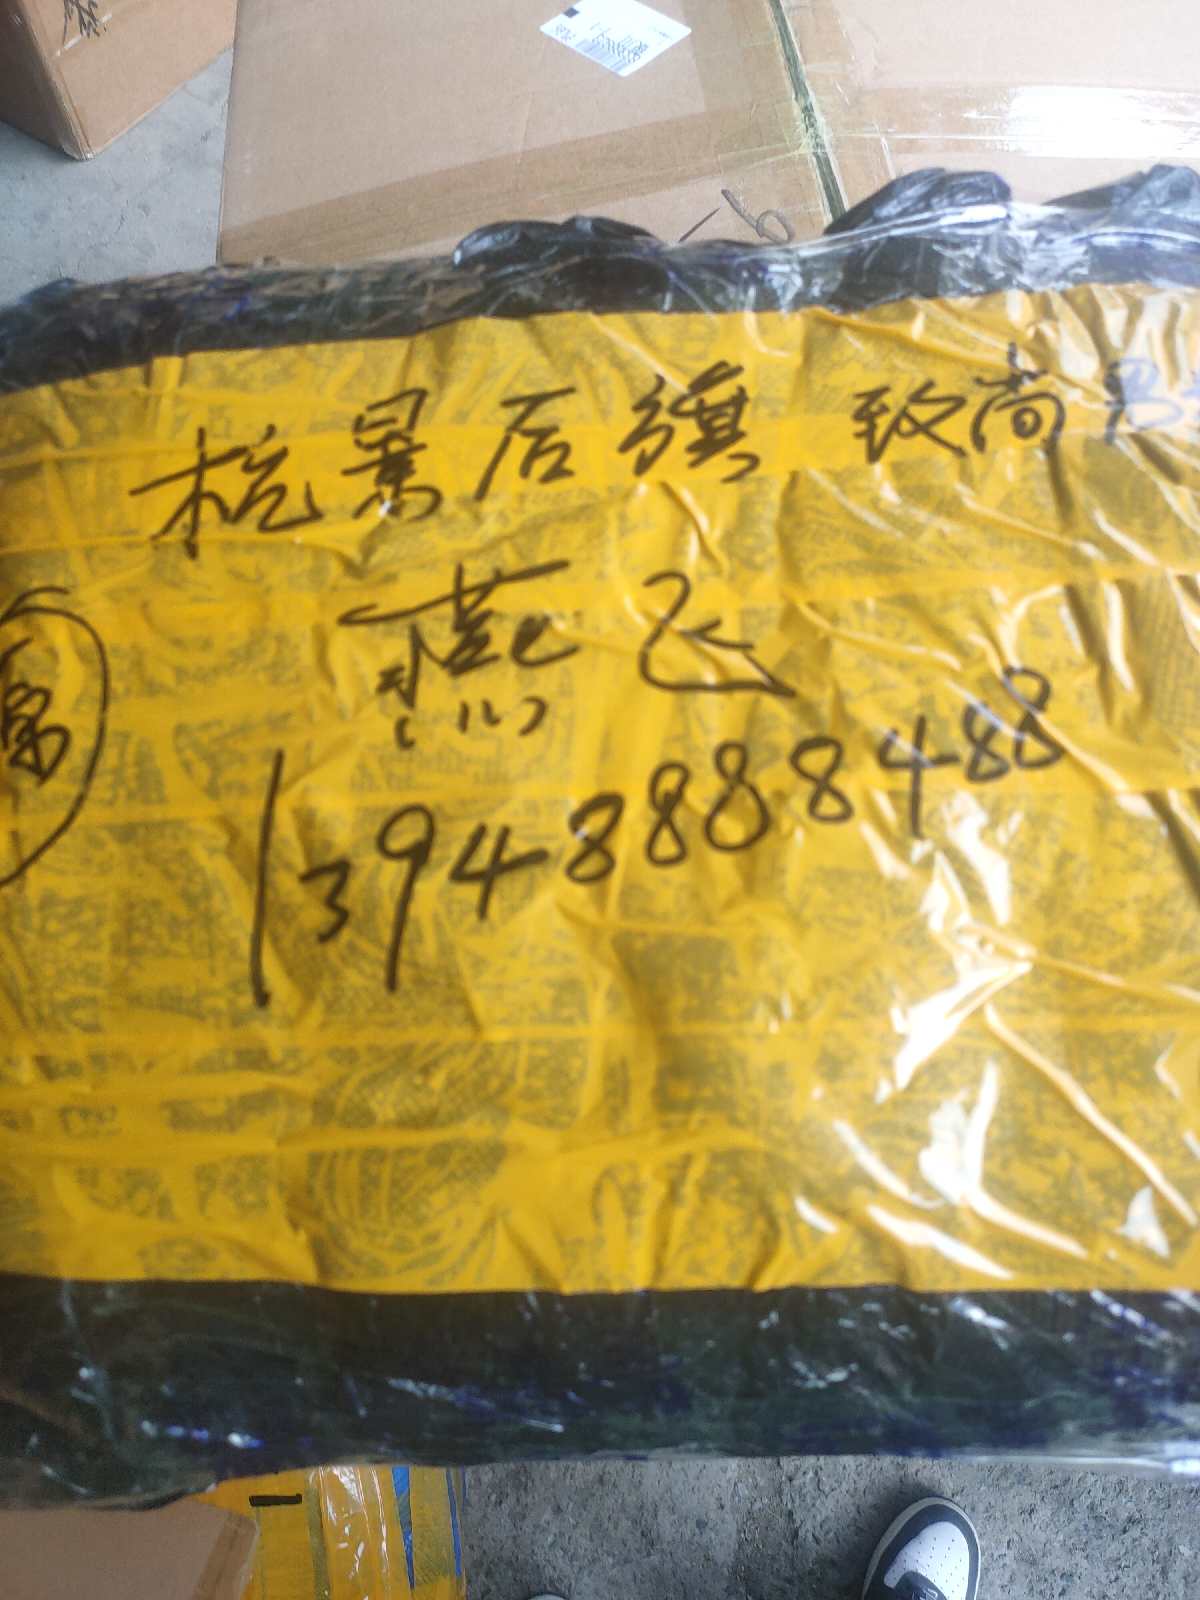 -6
杭景后旗 致尚
燕飞
13948888488